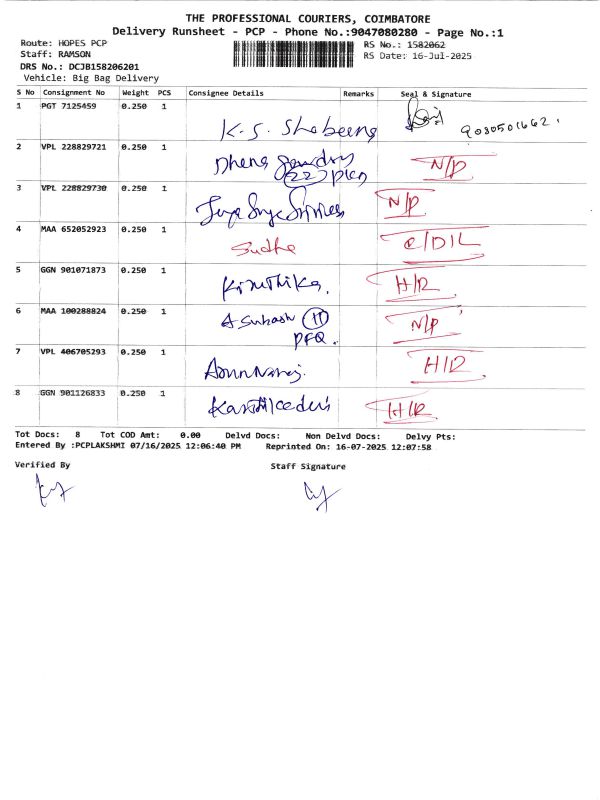 THE PROFESSIONAL COURIERS, COIMBATORE
Delivery Runsheet - PCP - Phone No.:9047080280 - Page No.:1
Route: HOPES PCP
Staff: RAMSON
DRS No.: DCJB158206201
Vehicle: Big Bag Delivery
RS No.: 1582062
RS Date: 16-Jul-2025
S No Consignment No Weight PCS Consignee Details Remarks Seal & Signature
1 PGT 7125459 0.250 1 K.S. Shabeena 9080501662.
2 VPL 228829721 0.250 1 Dhena N/P
3 VPL 228829730 0.250 1 N/P
4 MAA 652052923 0.250 1 Sudha C/D/L
5 GGN 901071873 0.250 1 Kiruthika. H/R
6 MAA 100288824 0.250 1 A Subash (H) N/P
PFQ.
7 VPL 406705293 0.250 1 H/R
8 GGN 901126833 0.250 1 H/R
Tot Docs: 8 Tot COD Amt: 0.00 Delvd Docs: Non Delvd Docs: Delvy Pts:
Entered By :PCPLAKSHMI 07/16/2025 12:06:40 PM Reprinted On: 16-07-2025 12:07:58
Verified By Staff Signature